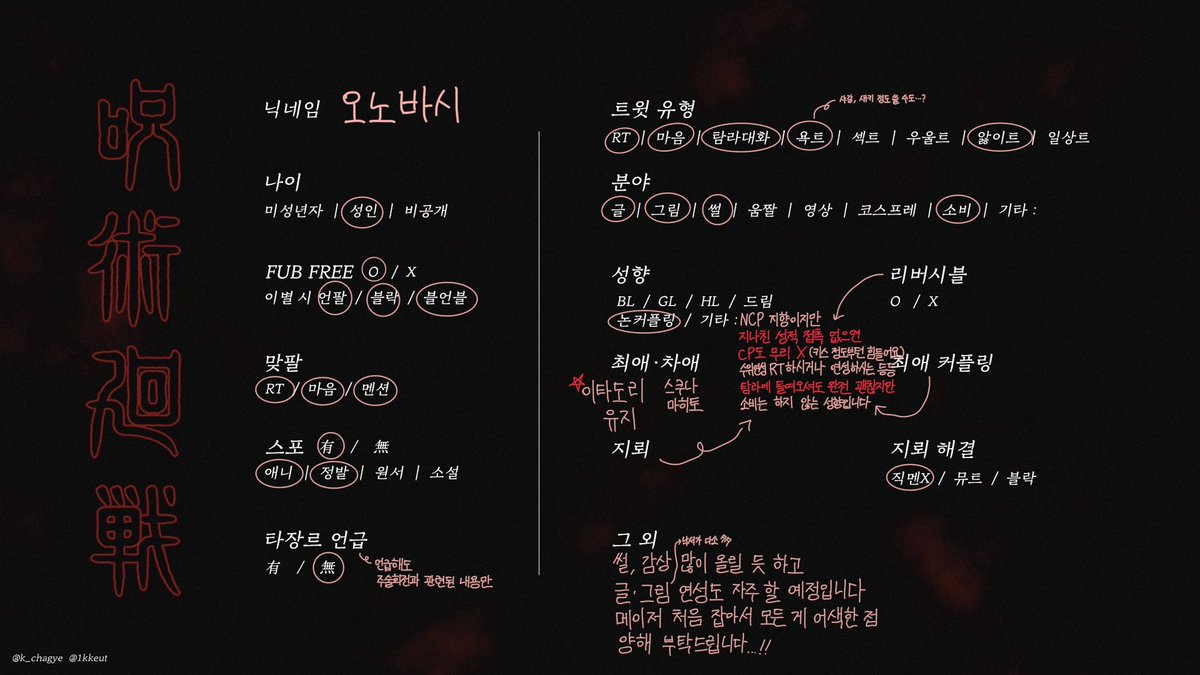 呪
術
廻
戦
닉네임 오노바시
나이
미성년자 | 성인 | 비공개
FUB FREE O / X
이별 시 언팔 / 블락 / 블언블
맞팔
RT / 마음 / 멘션
스포 有 / 無
애니 | 정발 | 원서 | 소설
타장르 언급
有 / 無
언급해도
주술회전과 관련된 내용만
트윗 유형
사갈, 새키 정도 쓸 수도...?
RT | 마음 | 탐라대화 | 욕트 | 섹트 | 우울트 | 앓이트 | 일상트
분야
글 | 그림 | 썰 | 움짤 | 영상 | 코스프레 | 소비 | 기타 :
성향
BL / GL / HL / 드림
논커플링 / 기타 : NCP 지향이지만
지나친 성적 접촉 없으면
CP도 무리 X (키스 정도부턴 힘들어요)
RT하시거나 연성하시는 등등
탐라에 들여오셔도 완전 괜찮지만
소비는 하지 않는 성향입니다
리버시블
O / X
최애·차애
이타도리
유지
스쿠나
마히토
최애 커플링
지뢰
지뢰 해결
직멘X / 뮤트 / 블락
그 외
낙서가 다소
썰, 감상 많이 올릴 듯 하고
글·그림 연성도 자주 할 예정입니다
메이저 처음 잡아서 모든 게 어색한 점
양해 부탁드립니다...!!
@k_chagye @1kkeut